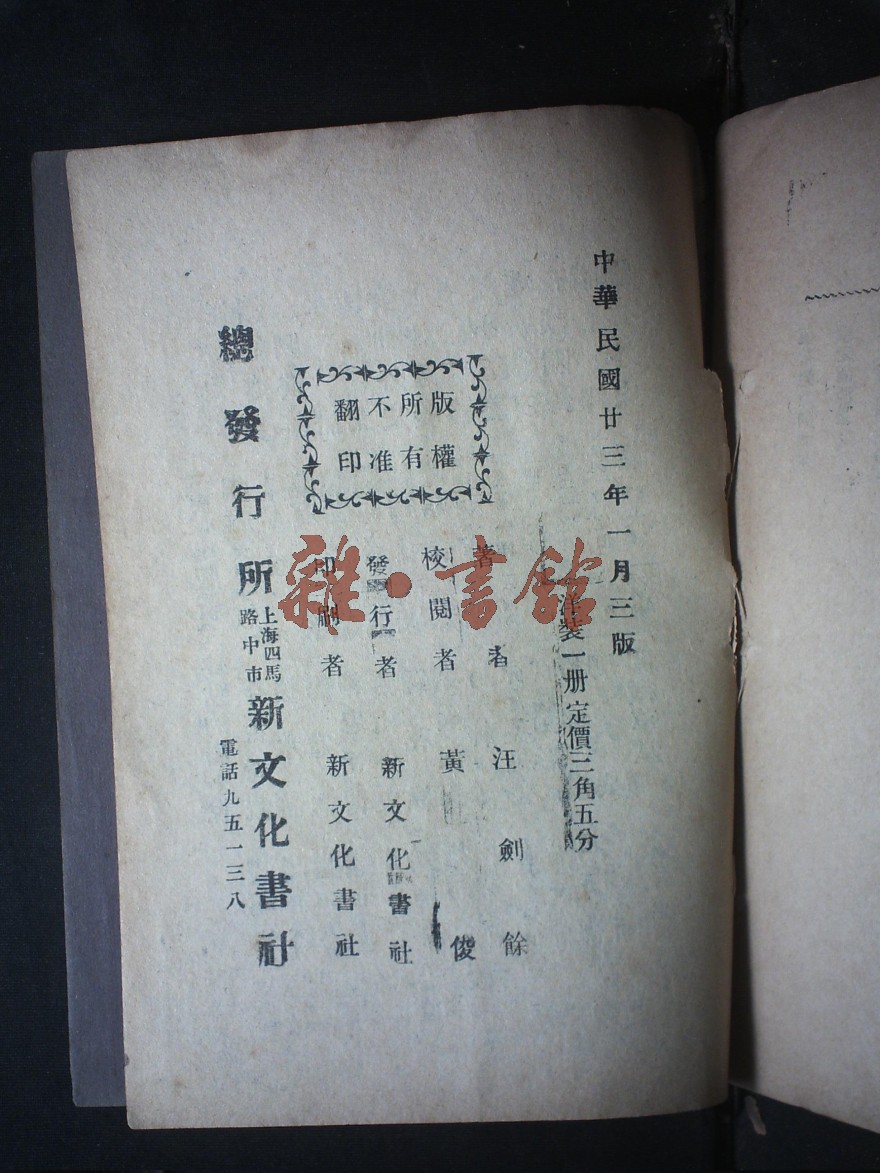 中華民國廿三年一月三版
洋裝一册定價三角五分
版權
所有
不准
翻印
著者 汪劍餘
校閱者 黃俊
發行者 新文化書社
印刷者 新文化書社
總發行所 上海四馬路中市 新文化書社
電話九五一三八
雜·書館